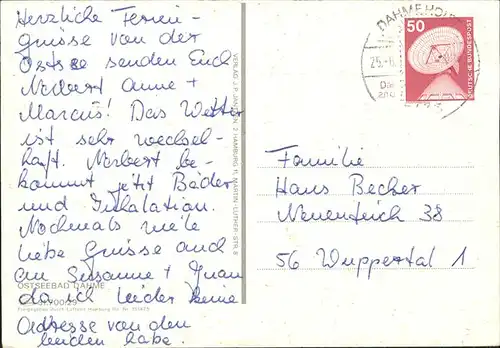 Herzliche Ferien-
grüsse von der
Ostsee senden Euch
Norbert Anne +
Marcus! Das Wetter
ist sehr wechsel-
haft. Norbert be-
kommt jetzt Bäder
und Inhalation.
Nochmals viele
liebe Grüsse auch
an Susanne +
da ich leider keine
Adresse von den
beiden habe.
OSTSEEBAD DAHME
VERLAG J. P. JANSEN, 2 HAMBURG 11, MARTIN-LUTHER-STR. 8
DAHME, HOLST
50
DEUTSCHE BUNDESPOST
Familie
Hans Becher
Neuenteich 38
56 Wuppertal 1